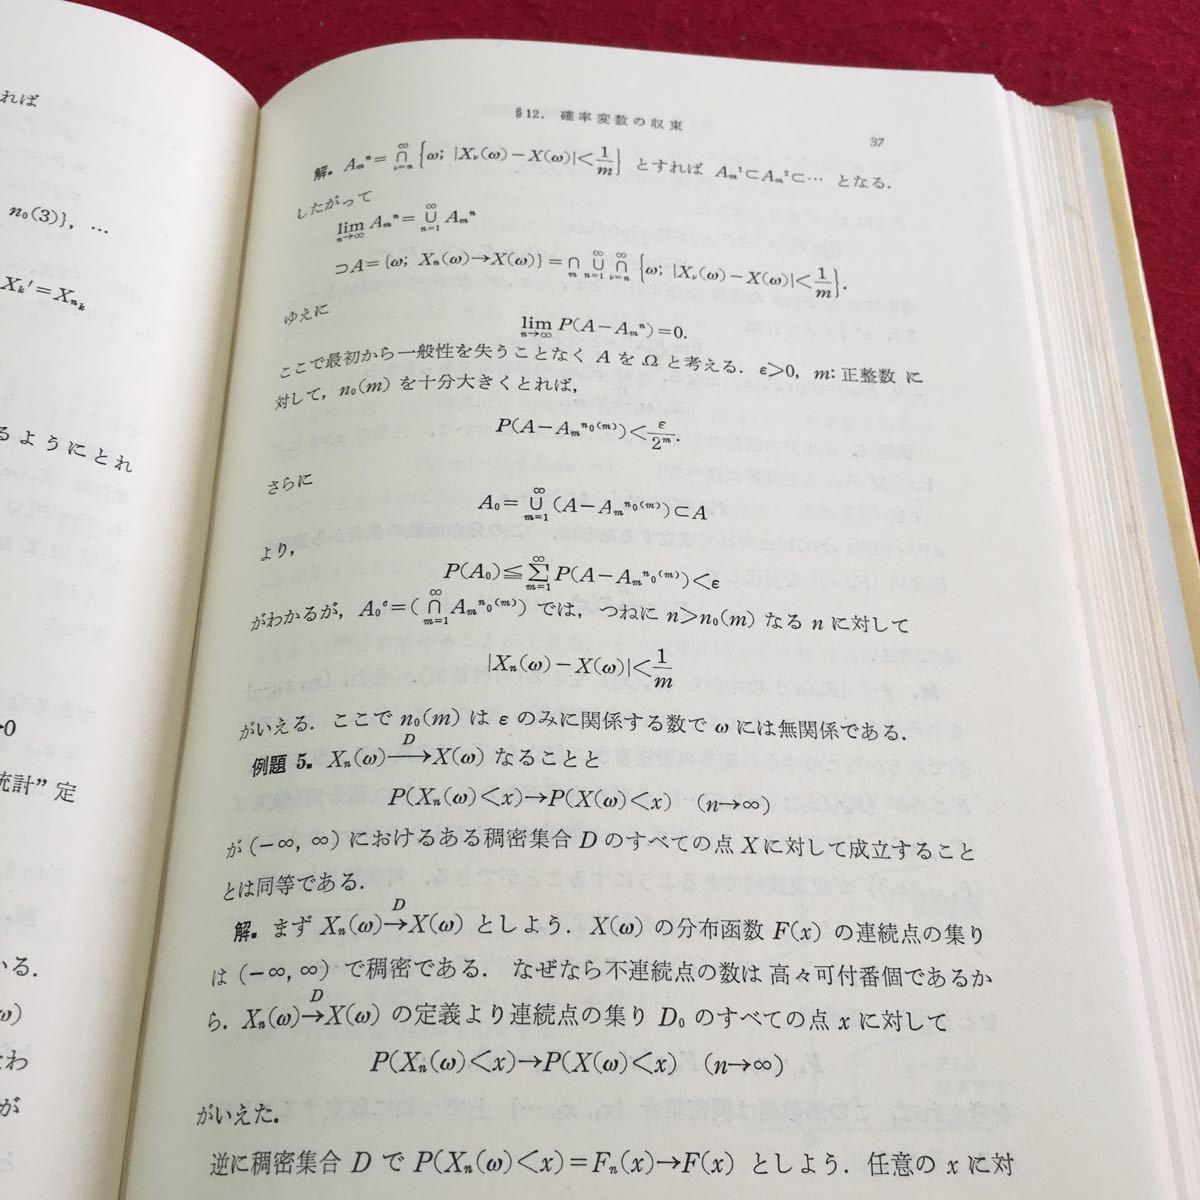 れば
n₀(3)}, …
Xₖ′=Xₙₖ
るようにとれ
→0
統計”定
いる.
ω)
なわ
が
と
§12. 確率変数の収束
37
解. Aₘⁿ=∩_{ν=n}^{∞}{ω; |X_ν(ω)−X(ω)|<1/m} とすれば Aₘ¹⊂Aₘ²⊂… となる.
したがって
lim_{n→∞} Aₘⁿ=∪_{n=1}^{∞} Aₘⁿ
⊃A={ω; Xₙ(ω)→X(ω)}=∩_{m} ∪_{n=1}^{∞} ∩_{ν=n}^{∞} {ω; |X_ν(ω)−X(ω)|<1/m}.
ゆえに
lim_{n→∞} P(A−Aₘⁿ)=0.
ここで最初から一般性を失うことなく A を Ω と考える. ε>0, m: 正整数 に
対して, n₀(m) を十分大きくとれば,
P(A−Aₘ^{n₀(m)})<ε/2ᵐ.
さらに
A₀=∪_{m=1}^{∞} (A−Aₘ^{n₀(m)})⊂A
より,
P(A₀)≦∑_{m=1}^{∞} P(A−Aₘ^{n₀(m)})<ε
がわかるが, A₀ᶜ=(∩_{m=1}^{∞} Aₘ^{n₀(m)}) では, つねに n>n₀(m) なる n に対して
|Xₙ(ω)−X(ω)|<1/m
がいえる. ここで n₀(m) は ε のみに関係する数で ω には無関係である.
例題 5. Xₙ(ω)—D→X(ω) なることと
P(Xₙ(ω)<x)→P(X(ω)<x) (n→∞)
が (−∞, ∞) におけるある稠密集合 D のすべての点 X に対して成立すること
とは同等である.
解. まず Xₙ(ω)—D→X(ω) としよう. X(ω) の分布函数 F(x) の連続点の集り
は (−∞, ∞) で稠密である. なぜなら不連続点の数は高々可付番個であるか
ら. Xₙ(ω)—D→X(ω) の定義より連続点の集り D₀ のすべての点 x に対して
P(Xₙ(ω)<x)→P(X(ω)<x) (n→∞)
がいえた.
逆に稠密集合 D で P(Xₙ(ω)<x)=Fₙ(x)→F(x) としよう. 任意の x に対